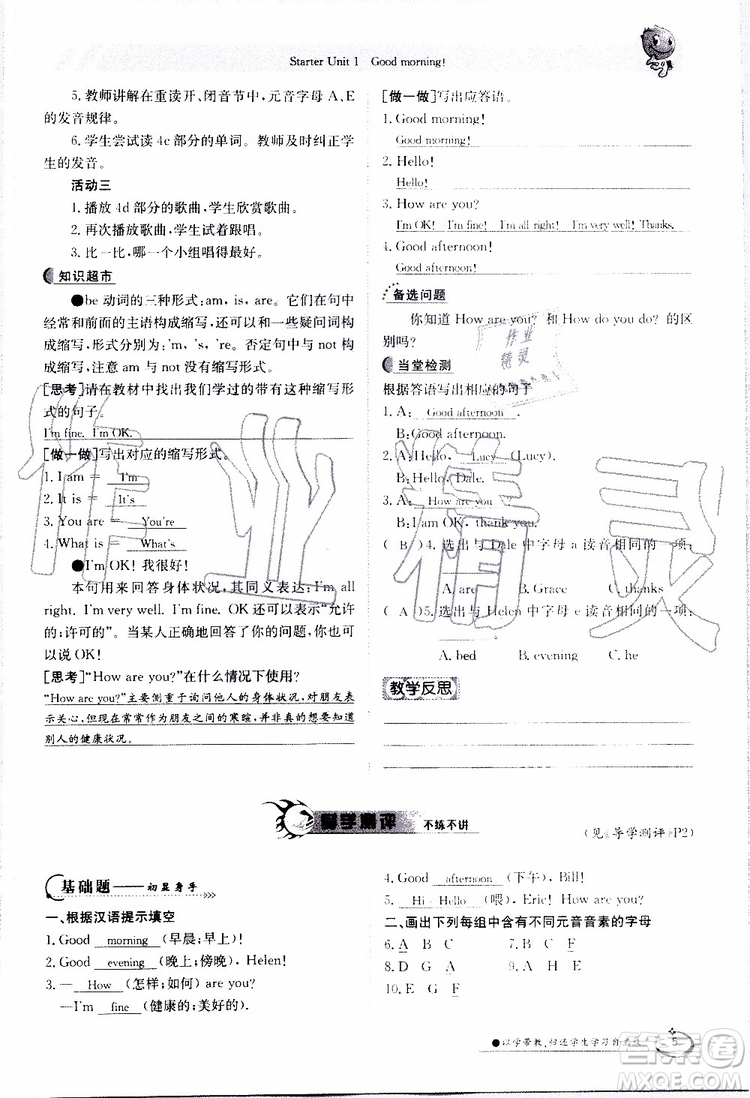 Starter Unit 1 Good morning!
5. 教师讲解在重读开、闭音节中,元音字母 A、E
的发音规律。
6. 学生尝试读 4c 部分的单词。教师及时纠正学
生的发音。
活动三
1. 播放 4d 部分的歌曲,学生欣赏歌曲。
2. 再次播放歌曲,学生跟唱。
3. 比一比,哪一个小组唱得最好。
知识超市
●be 动词的三种形式:am, is, are。它们在句中
经常和前面的主语构成缩写,还可以和一些疑问词构
成缩写,形式分别为:'m, 's, 're。否定句中与 not 构成
缩写,注意 am 与 not 没有缩写形式。
[思考]请在教材中找出我们学过的带有这种缩写形
式的句子。
I'm fine. I'm OK!
[做一做]写出对应的缩写形式。
1. I am = I'm
2. It is = It's
3. You are = You're
4. What is = What's
●I'm OK! 我很好!
本句用来回答身体状况,其同义表达:I'm all
right. I'm very well. I'm fine. OK 还可以表示“允许
的;许可的”。当某人正确地回答了你的问题,你就可
以说 OK!
[思考]“How are you?”在什么情况下使用?
“How are you?”主要侧重于询问他人的身体状况,对朋友表
示关心,但现在常常作为朋友之间的寒暄,并非真的想知道
别人的健康状况。
[做一做]写出应答语。
1. Good morning!
Good morning!
2. Hello!
Hello!
3. How are you?
I'm OK! I'm fine! I'm all right! I'm very well! Thanks.
4. Good afternoon!
Good afternoon!
备选问题
你知道 How are you? 和 How do you do? 的区
别吗?
当堂检测
根据答语写出相应的句子
1. A: Good afternoon .
B: Good afternoon.
2. A: Hello, Lucy (Lucy).
B: Hello, Dale.
3. A: How are you ?
B: I am OK, thank you.
( B )4. 选出与 Dale 中字母 a 读音相同的一项:
A. are B. Grace C. thanks
( A )5. 选出与 Helen 中字母 e 读音相同的一项:
A. bed B. evening C. he
教学反思
导学测评 不练不讲
(见《导学测评》P2)
基础题——初显身手
一、根据汉语提示填空
1. Good morning (早晨;早上)!
2. Good evening (晚上;傍晚), Helen!
3. — How (怎样;如何) are you?
—I'm fine (健康的;美好的).
4. Good afternoon (下午), Bill!
5. Hi / Hello (喂), Eric! How are you?
二、画出下列每组中含有不同元音音素的字母
6. A B C 7. B C F
8. D G A 9. A H F
10. E G F
●以学带教,归还学生学习自主权
5
作业精灵
作业
精灵
答案圈
MXQE.COM